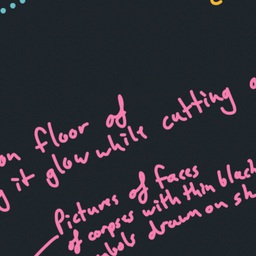 on floor of
it glow while cutting
Pictures of faces
of corpses with thin black
drawn on